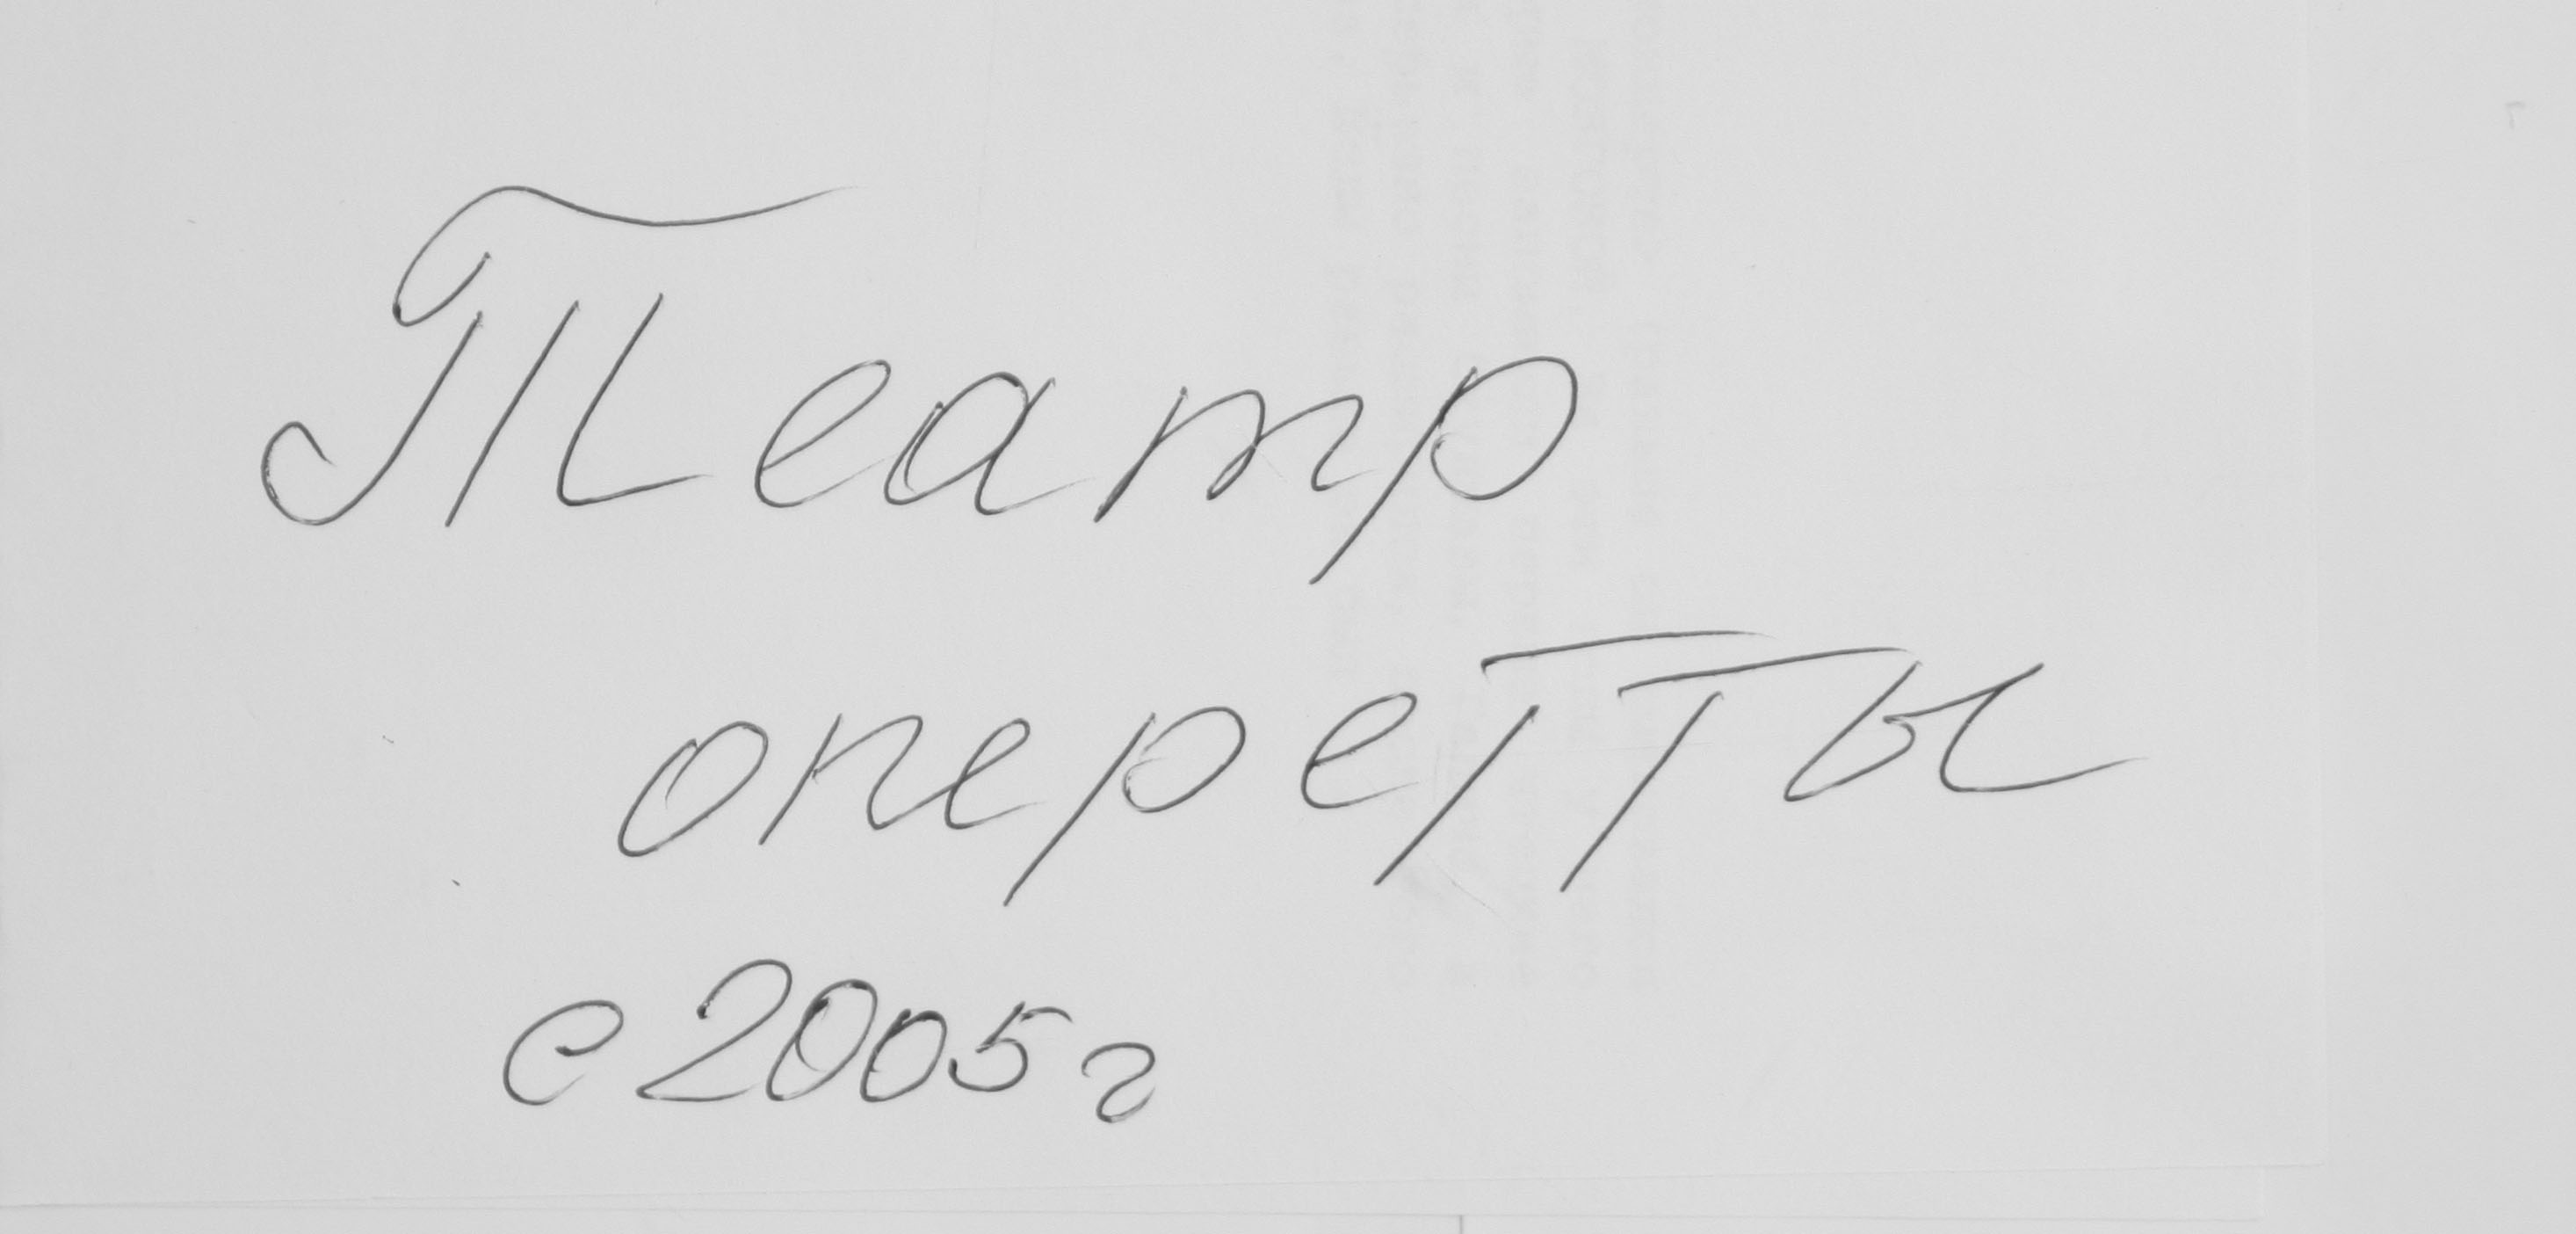 Театр
оперетты
с 2005 г